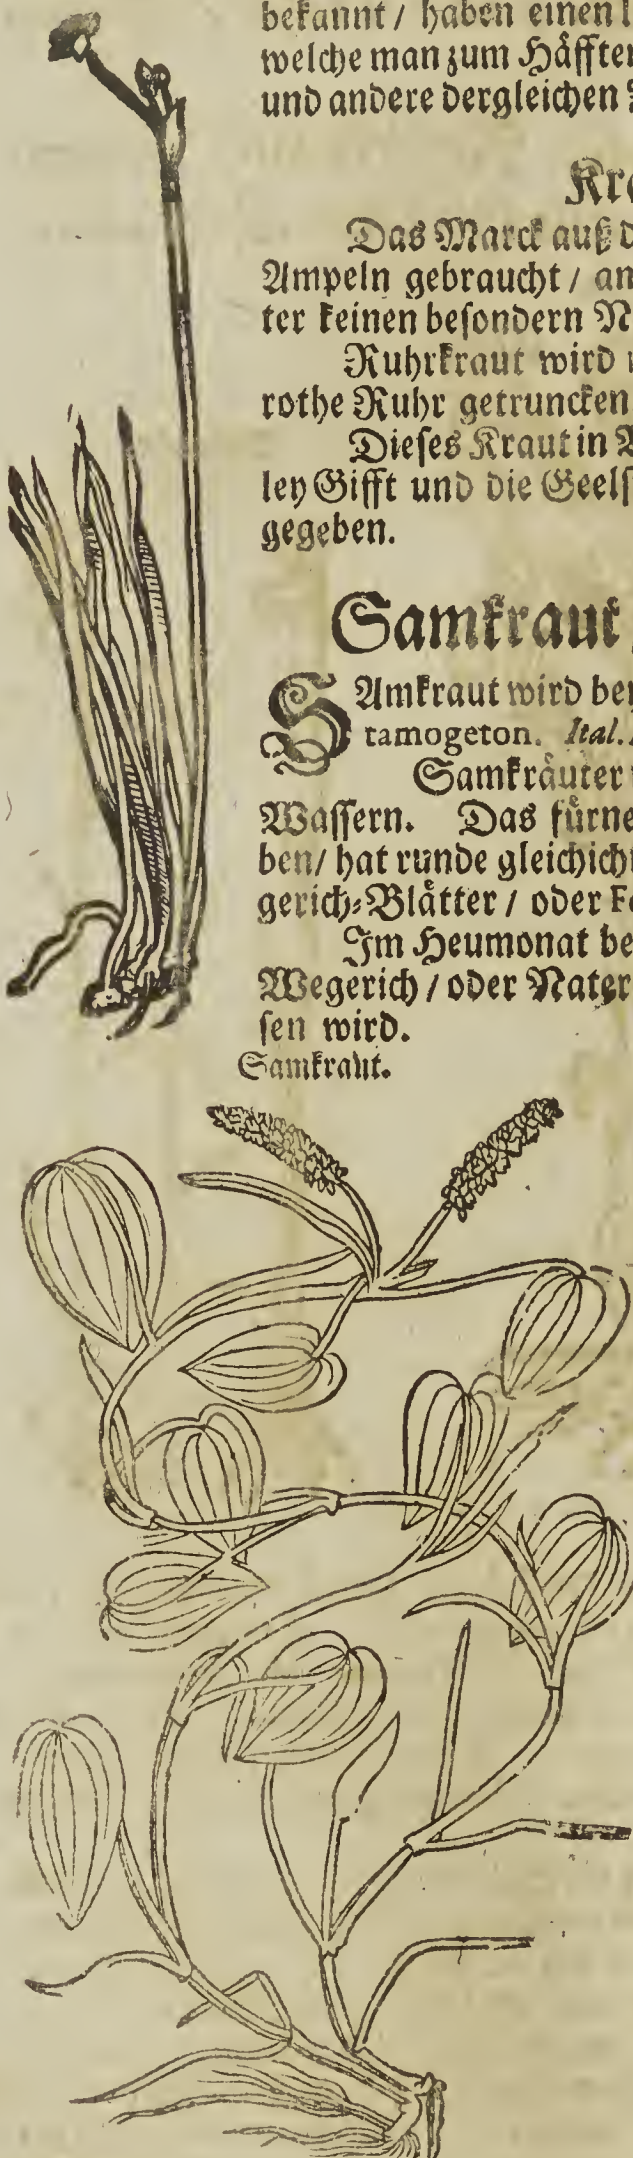 bekannt / haben einen
welche man zum Häfften
und andere dergleichen
Das Marck auß
Ampeln gebraucht / an
ter keinen besondern
Ruhrkraut wird
rothe Ruhr getruncken
Dieses Kraut in
ley Gifft und die
gegeben.
Samkraut
SAmkraut wird
tamogeton. Ital.
Samkräuter
Wassern. Das
ben / hat runde
gerich-Blätter / oder
Im Heumonat
Wegerich / oder
sen wird.
Samkraut.